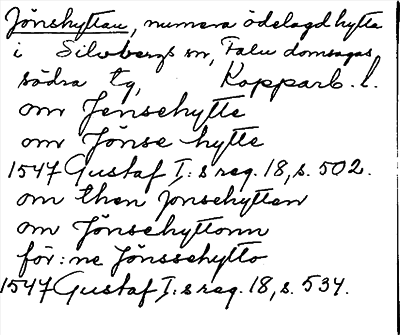 Jönshyttan, numera ödelagd hytta
i Silvbergs sn, Falu domsagas
södra tg, Kopparb. l.
om Jensehytte
om Jönse hytte
1547 Gustaf I:s reg. 18, s. 502.
om then Jonsehytten
om Jönsehyttonn
för:ne Jönssehytto
1547 Gustaf I:s reg. 18, s. 534.